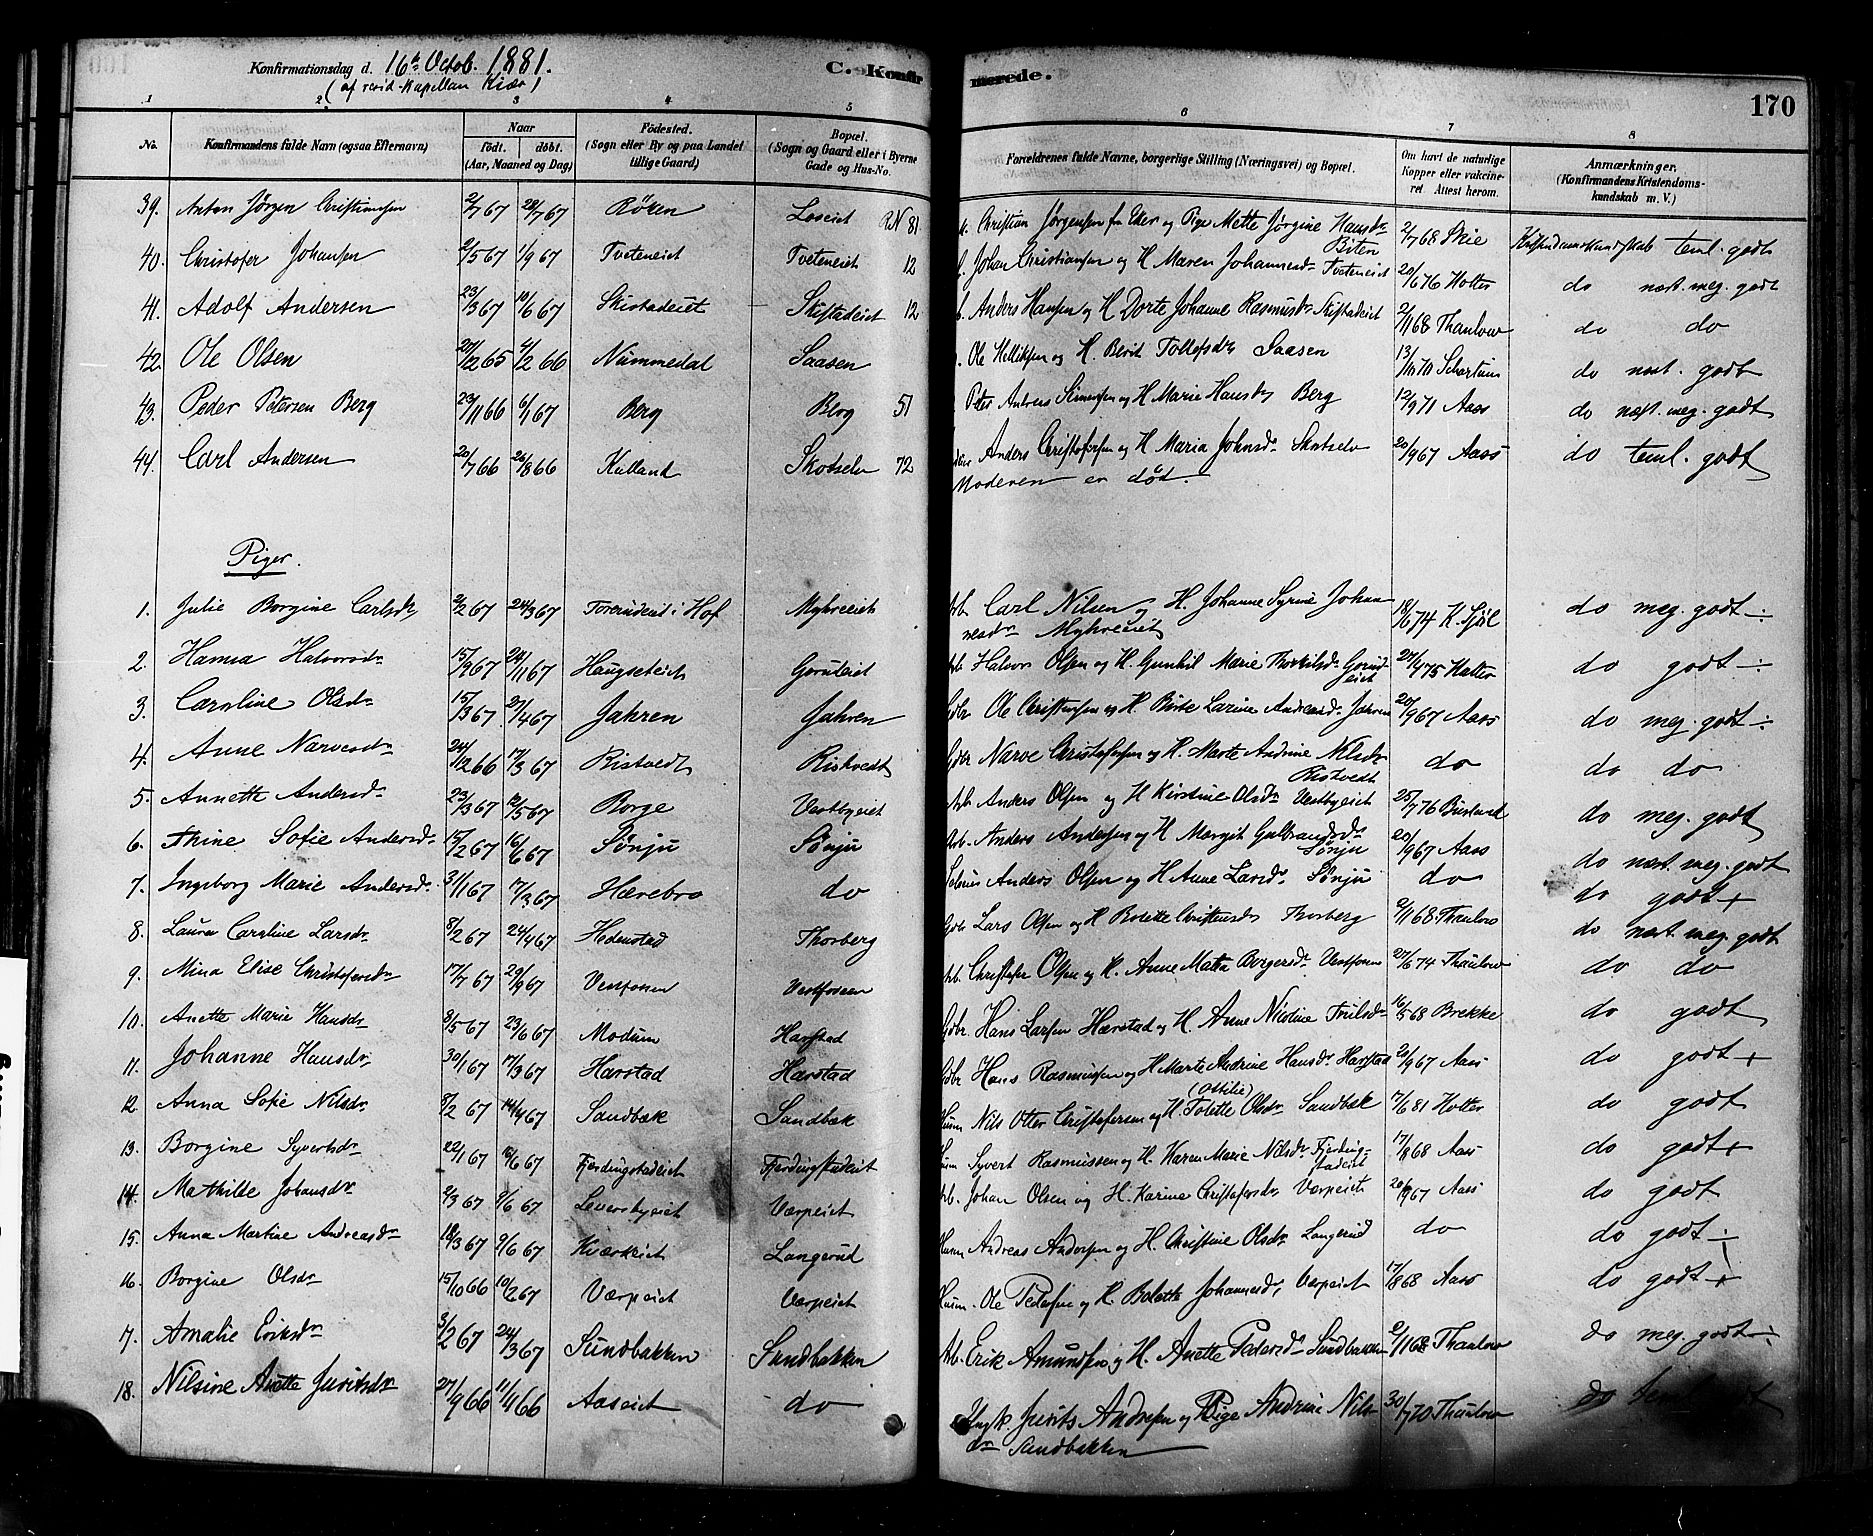 Konfirmationsdag d. 16de Octob. 1881.
(af resid. Kapellan Kiær)
C. Konfirmerede.
170
1 2 3 4 5 6 7 8
No. Konfirmandens fulde Navn (ogsaa Efternavn) Naar født. døbt. (Aar, Maaned og Dag) Födested. (Sogn eller By og paa Landet tillige Gaard) Bopæl. (Sogn og Gaard eller i Byerne Gade og Hus-No. Forældrenes fulde Navne, borgerlige Stilling (Næringsvei) og Bopæl. Om havt de naturlige Kopper eller vakcineret. Attest herom. Anmærkninger. (Konfirmandens Kristendomskundskab m. V.)
39. Anton Jörgen Christiansen 2/7 67 28/7 67 Röken Loseiet RN 81 Christian Jørgensen fra Eker og Pige Mette Jørgine Hansdr Biten 2/7 68 Skie Kristendomskundskab teml. godt
40. Christofer Johansen 2/5 67 1/9 67 Tveteneiet Tveteneiet 12 Johan Christiansen og H. Maren Johannesdr Tveteneiet 20/6 76 Holter do næst. meg. godt
41. Adolf Andersen 23/3 67 10/6 67 Skistadeiet Skistadeiet 12 Anders Hansen og H Dorte Johanne Rasmusdr Skistadeiet 2/11 68 Thaulow do do
42. Ole Olsen 20/12 65 4/2 66 Nummedal Saasen Ole Helliksen og H. Berit Tollefsdr Saasen 13/10 70 Schartum do næst. godt
43. Peder Petersen Berg 23/11 66 6/1 67 Berg Berg 51 Peter Andreas Simensen og H Marie Hansdr Berg 12/9 71 Aass do næst. meg. godt
44. Carl Andersen 20/7 66 26/8 66 Kulland Skotselv 72 Anders Christofersen og H Maria Johnsdr Skotselv 20/9 67 Aass do teml. godt
Moderen er död.
Piger.
1. Julie Borgine Carlsdr 2/2 67 24/3 67 Foreindeiet i Hof Myhreeiet Arb Carl Nilsen og H. Johanne Syrine Johannesdr Myhreeiet 18/6 74 K. Sjöl do meg. godt ÷
2. Hanna Halvorsdr 15/9 67 24/11 67 Haugseteiet Gorudeiet Arb. Halvor Olsen og H. Gunhil Marie Thorkilsdr Gorudeiet 27/4 75 Holter do godt ÷
3. Caroline Olsdr 15/3 67 27/4 67 Jahren Jahren Gdbr Ole Christensen og H. Birte Larine Andreasdr Jahren 20/9 67 Aass do meg. godt ÷
4. Anne Narvesdr 24/12 66 17/3 67 Ristvedt Riskvedt Gdbr Narve Christofersen og H. Marte Andrine Nilsdr Riskvedt do do do
5. Annette Andersdr 23/3 67 12/5 67 Borge Vestbyeiet Arb. Anders Olsen og H Kirstine Olsdr Vestbyeiet 25/7 76 Buslund do meg. godt
6. Thine Sofie Andersdr 15/2 67 16/6 67 Sönju Sönju Arb. Anders Andersen og H Margit Gulbrandsdr Sönju 20/9 67 Aass do næst. meg. godt
7. Ingeborg Marie Andersdr 31/1 67 17/3 67 Hærebro do Anders Olsen og H Anne Larsdr Sönju do do godt +
8. Laura Caroline Larsdr 8/2 67 24/4 67 Hedenstad Thorberg Gdbr Lars Olsen og H Bolette Christensdr Thorberg 2/11 68 Thaulow do næst. meg. godt
9. Mina Elise Christofersdr 17/7 67 29/9 67 Vestfossen Vestfossen Arb. Christofer Olsen og H. Anne Matta Borgersdr Vestfossen 27/6 74 Thaulow do do
10. Anette Marie Hansdr 8/5 67 23/6 67 Modum Harstad Gdbr Hans Larsen Hærstad og H Anne Nicoline Truilsdr 16/5 68 Brekke do godt
11. Johanne Hansdr 30/1 67 17/3 67 Harstad Hærstad Gdbr Hans Rasmussen og H Marte Andrine Hansdr Harstad 20/9 67 Aass do godt +
12. Anna Sofie Nilsdr 8/2 67 14/4 67 Sandbæk Sandbæk Husm Nils Otter Christofersen og H Tolette (Ottilie) Olsdr Sandbæk 17/6 81 Holter do godt
13. Borgine Syvertsdr 22/1 67 10/6 67 Fjerdingstadeiet Fjerdingstadeiet Husm Syvert Rasmussen og H. Karen Marie Nilsdr Fjerdingstadeiet 17/8 68 Aass do godt +
14. Mathilde Johansdr 2/3 67 9/6 67 Leversbyeiet Værpeiet Arb. Johan Olsen og H. Karine Christofersdr Værpeiet 20/9 67 Aass do godt
15. Anna Martine Andreasdr 18/3 67 9/6 67 Kværkeiet Langerud Husm Andreas Andersen og H. Christine Olsdr Langerud do do godt ÷
16. Borgine Olsdr 15/10 66 10/2 67 Værpeiet Værpeiet Husm. Ole Pedersen og H. Bolette Johannesdr, Værpeiet 17/8 68 Aass do godt +
17. Amalie Eriksdr 3/2 67 24/3 67 Sundbakken Sandbakken Arb. Erik Amundsen og H. Anette Pedersdr Sandbakken 2/11 68 Thaulow do meg. godt ÷
18. Nilsine Anette Juritsdr 27/9 66 11/4 66 Aaseiet do Ungk Jurits Andresen og Pige Andrine Nilsdr Sandbakken 30/7 70 Thaulow do teml. godt